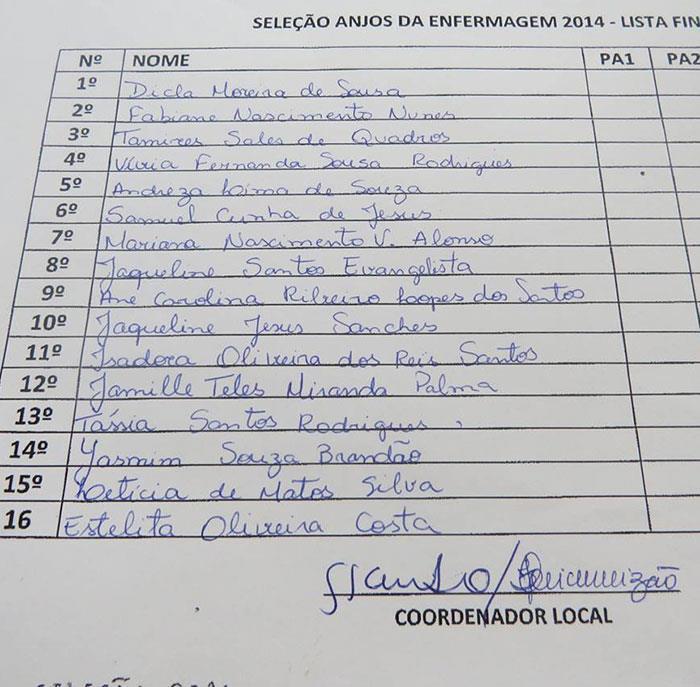 SELEÇÃO ANJOS DA ENFERMAGEM 2014 - LISTA FIN
Nº NOME PA1 PA2
1º Dicla Moreira de Sousa
2º Fabiane Nascimento Nunes
3º Tamires Sales de Quadros
4º Vívia Fernanda Sousa Rodrigues
5º Andreza Loima de Souza
6º Samuel Cunha de Jesus
7º Mariana Nascimento V. Alonso
8º Jaqueline Santos Evangelista
9º Ane Carolina Ribeiro Loopes dos Santos
10º Jaqueline Jesus Sanches
11º Isadora Oliveira dos Reis Santos
12º Jamille Teles Miranda Palma
13º Tássia Santos Rodrigues
14º Yasmim Souza Brandão
15º Letícia de Matos Silva
16 Estelita Oliveira Costa
COORDENADOR LOCAL